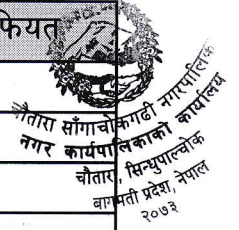 फियत
चौतारा साँगाचोकगढी नगरपालिका
नगर कार्यपालिकाको कार्यालय
चौतारा, सिन्धुपाल्चोक
बागमती प्रदेश, नेपाल
२०७३